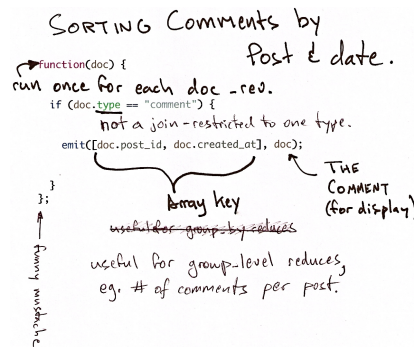 SORTING Comments by
Post & date.
function(doc) {
run once for each doc_rev.
if (doc.type == "comment") {
not a join-restricted to one type.
emit([doc.post_id, doc.created_at], doc);
THE
COMMENT
(for display)
Array key
}
};
useful for group-by reduces
useful for group-level reduces,
eg. # of comments per post.
funny mustache